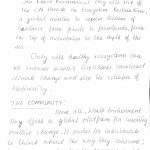 World Environment Day will kick off
the UN Decade on Ecosystem Restoration
a global mission to revive billions of
hectares from forests to farmlands, from
the top of mountains to the depth of the
sea.
Only with healthy ecosystems can
we enhance people's livelihoods, counteract
climate change and stop the collapse of
Biodiversity.
THE COMMUNITY:
Above all, World Environment
Day offers a global platform for inspiring
positive change. It pushes for individuals
to think about the way they consume